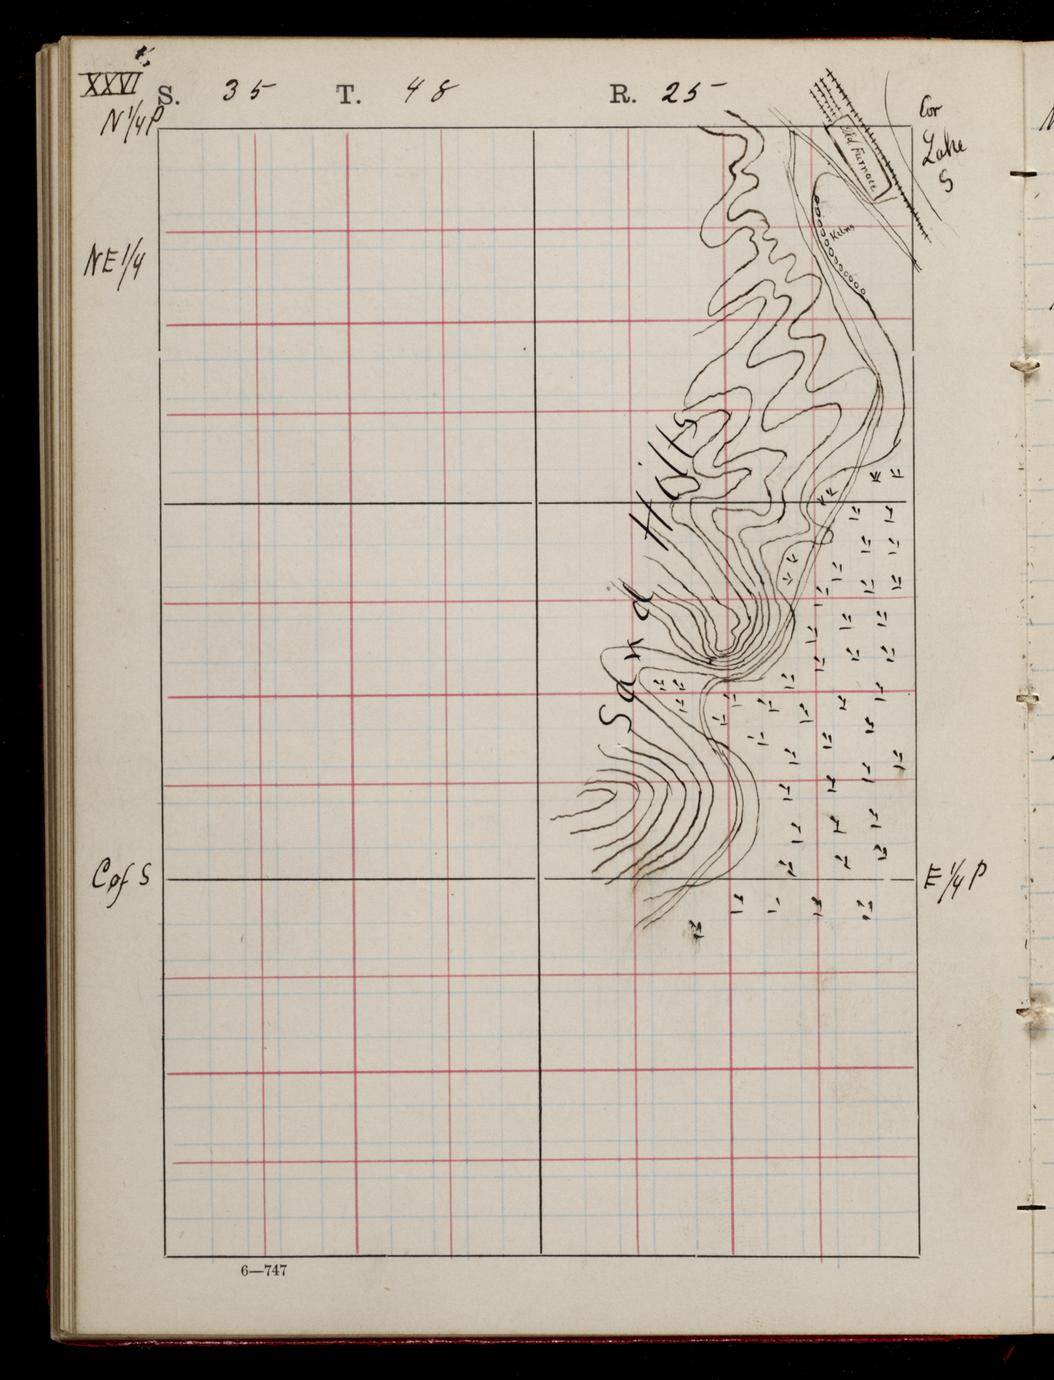 XXVI
S. 35 T. 48 R. 25
N 1/4 P
Cor
Lake
S
Old Furnace
Kilns
NE 1/4
Sand Hills
C of S
E 1/4 P
6—747